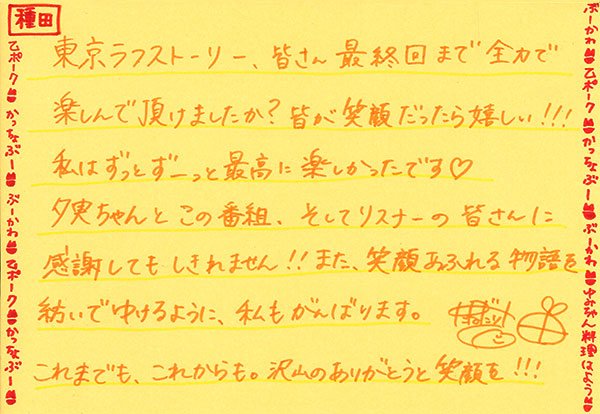 種田
東京ラフストーリー、皆さん最終回まで全力で
楽しんで頂けましたか?皆が笑顔だったら嬉しい!!!
私はずっとずーっと最高に楽しかったです♡
夕実ちゃんとこの番組、そしてリスナーの皆さんに
感謝してもしきれません!!また、笑顔あふれる物語を
紡いでゆけるように、私もがんばります。
これまでも、これからも。沢山のありがとうと笑顔を!!!
乙ポーク かっちょぶー ぶーかわ 乙ポーク かっちょぶー
ぶーかわ 乙ポーク かっちょぶー ぶーかわ ゆみちゃん料理はよう